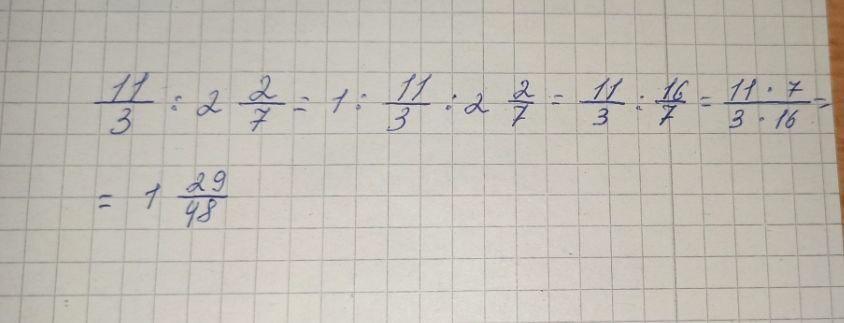 11/3 : 2 2/7 = 1 : 11/3 : 2 2/7 = 11/3 : 16/7 = 11 · 7/3 · 16 =
= 1 29/48